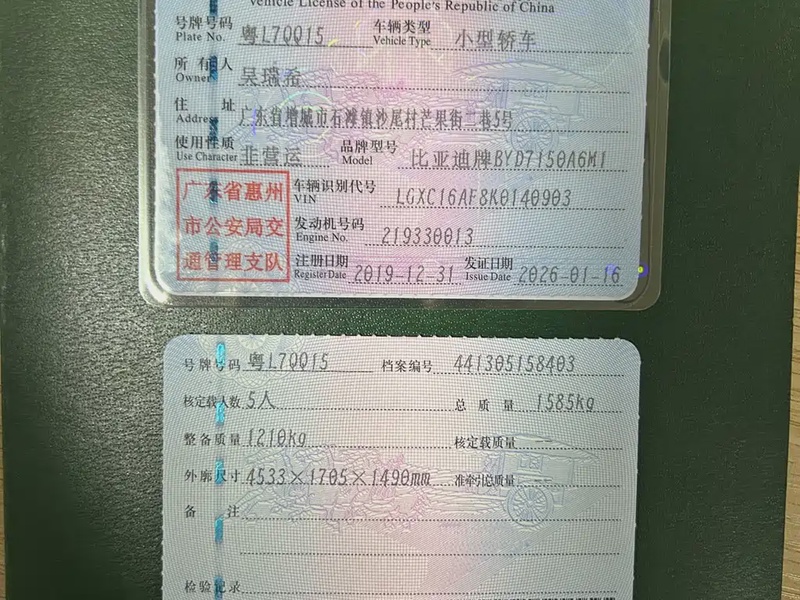 Vehicle License of the People's Republic of China
号牌号码 粤L7QQ15 车辆类型 小型轿车
Plate No. Vehicle Type
所有人 吴瑞希
Owner
住址 广东省增城市石滩镇沙尾村芒果街二巷5号
Address
使用性质 非营运 品牌型号 比亚迪牌BYD7150A6M1
Use Character Model
广东省惠州
市公安局交
通管理支队
车辆识别代号 LGXC16AF8K0140903
VIN
发动机号码 219330013
Engine No.
注册日期 2019-12-31 发证日期 2026-01-16
Register Date Issue Date
号牌号码 粤L7QQ15 档案编号 441305158403
核定载人数 5人 总质量 1585kg
整备质量 1210kg 核定载质量 --
外廓尺寸 4533×1705×1490mm 准牵引总质量 --
备注
检验记录